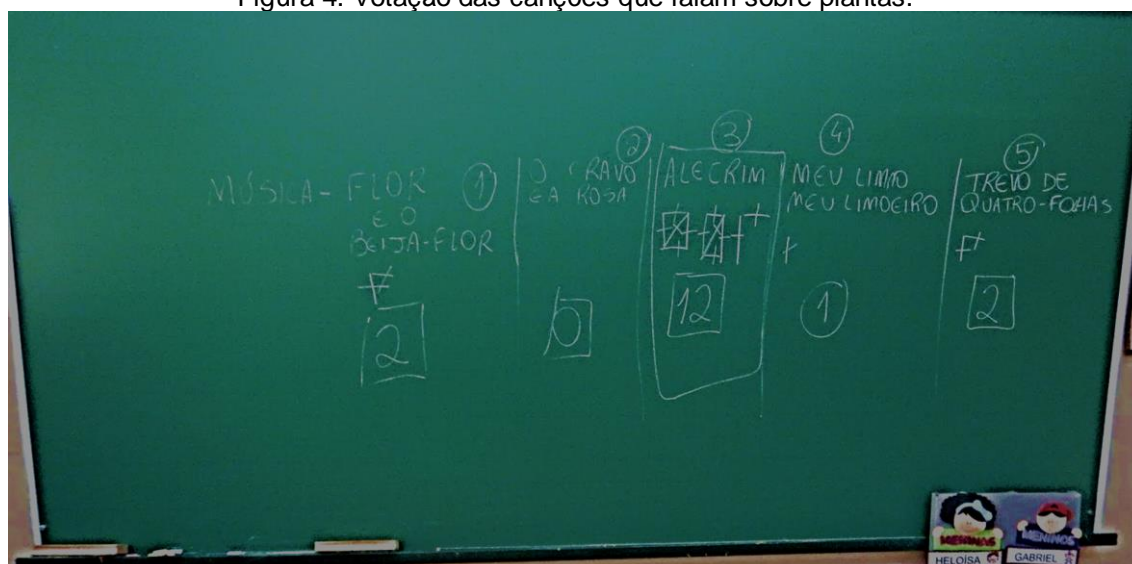 Figura 4. Votação das canções que falam sobre plantas.
MÚSICA - FLOR
E O
BEIJA-FLOR
1
2
2
O CRAVO
E A ROSA
0
3
ALECRIM
12
4
MEU LIMÃO
MEU LIMOEIRO
1
5
TREVO DE
QUATRO-FOLHAS
2
MENINAS
HELOÍSA
MENINOS
GABRIEL